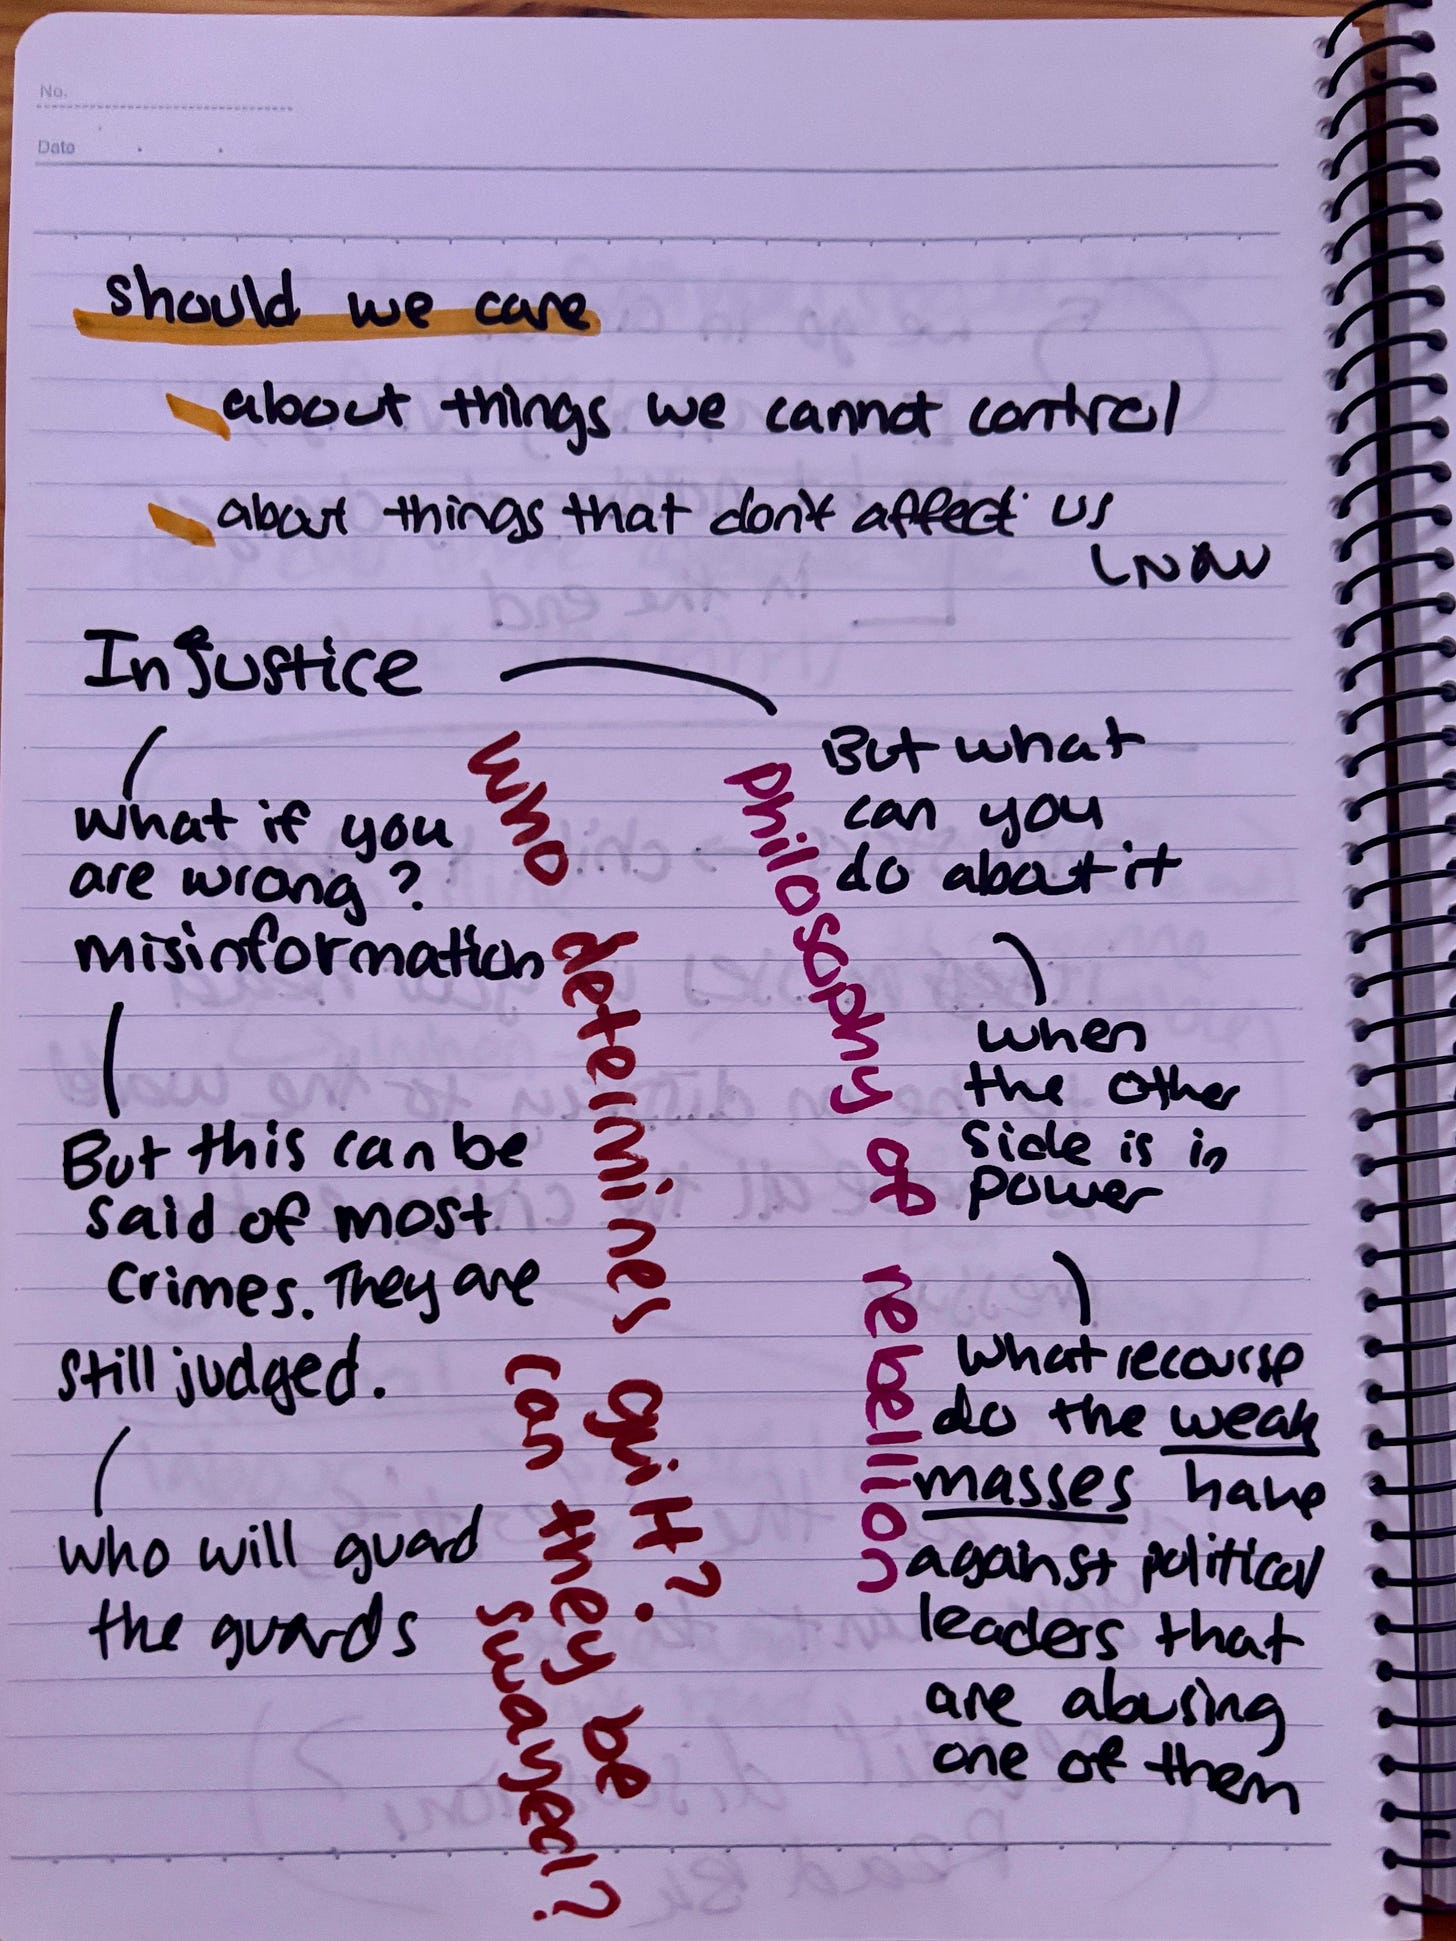 No.
Date
should we care
about things we cannot control
about things that don't affect us
now
Injustice
what if you
are wrong?
misinformation
But this can be
said of most
crimes. They are
still judged.
who will guard
the guards
who determines guilt?
can they be
swayed?
philosophy of rebellion
But what
can you
do about it
when
the other
side is in
power
What recourse
do the weak
masses have
against political
leaders that
are abusing
one of them